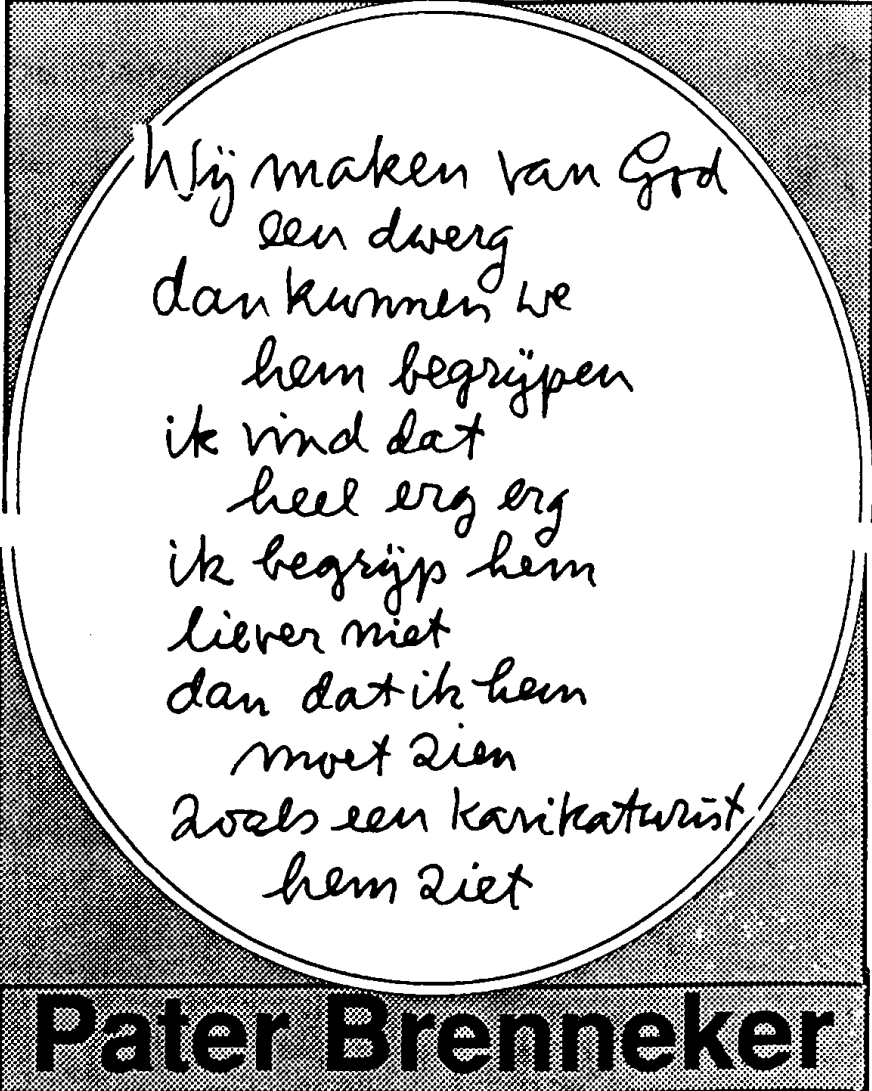 Wij maken van God
een dwerg
dan kunnen we
hem begrijpen
ik vind dat
heel erg erg
ik begrijp hem
liever niet
dan dat ik hem
moet zien
zoals een karikaturist
hem ziet
Pater Brenneker